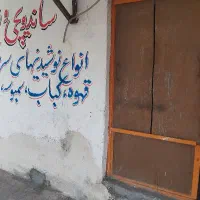 ساندویچی و
انواع نوشیدنیهای سر
قهوه، کباب،